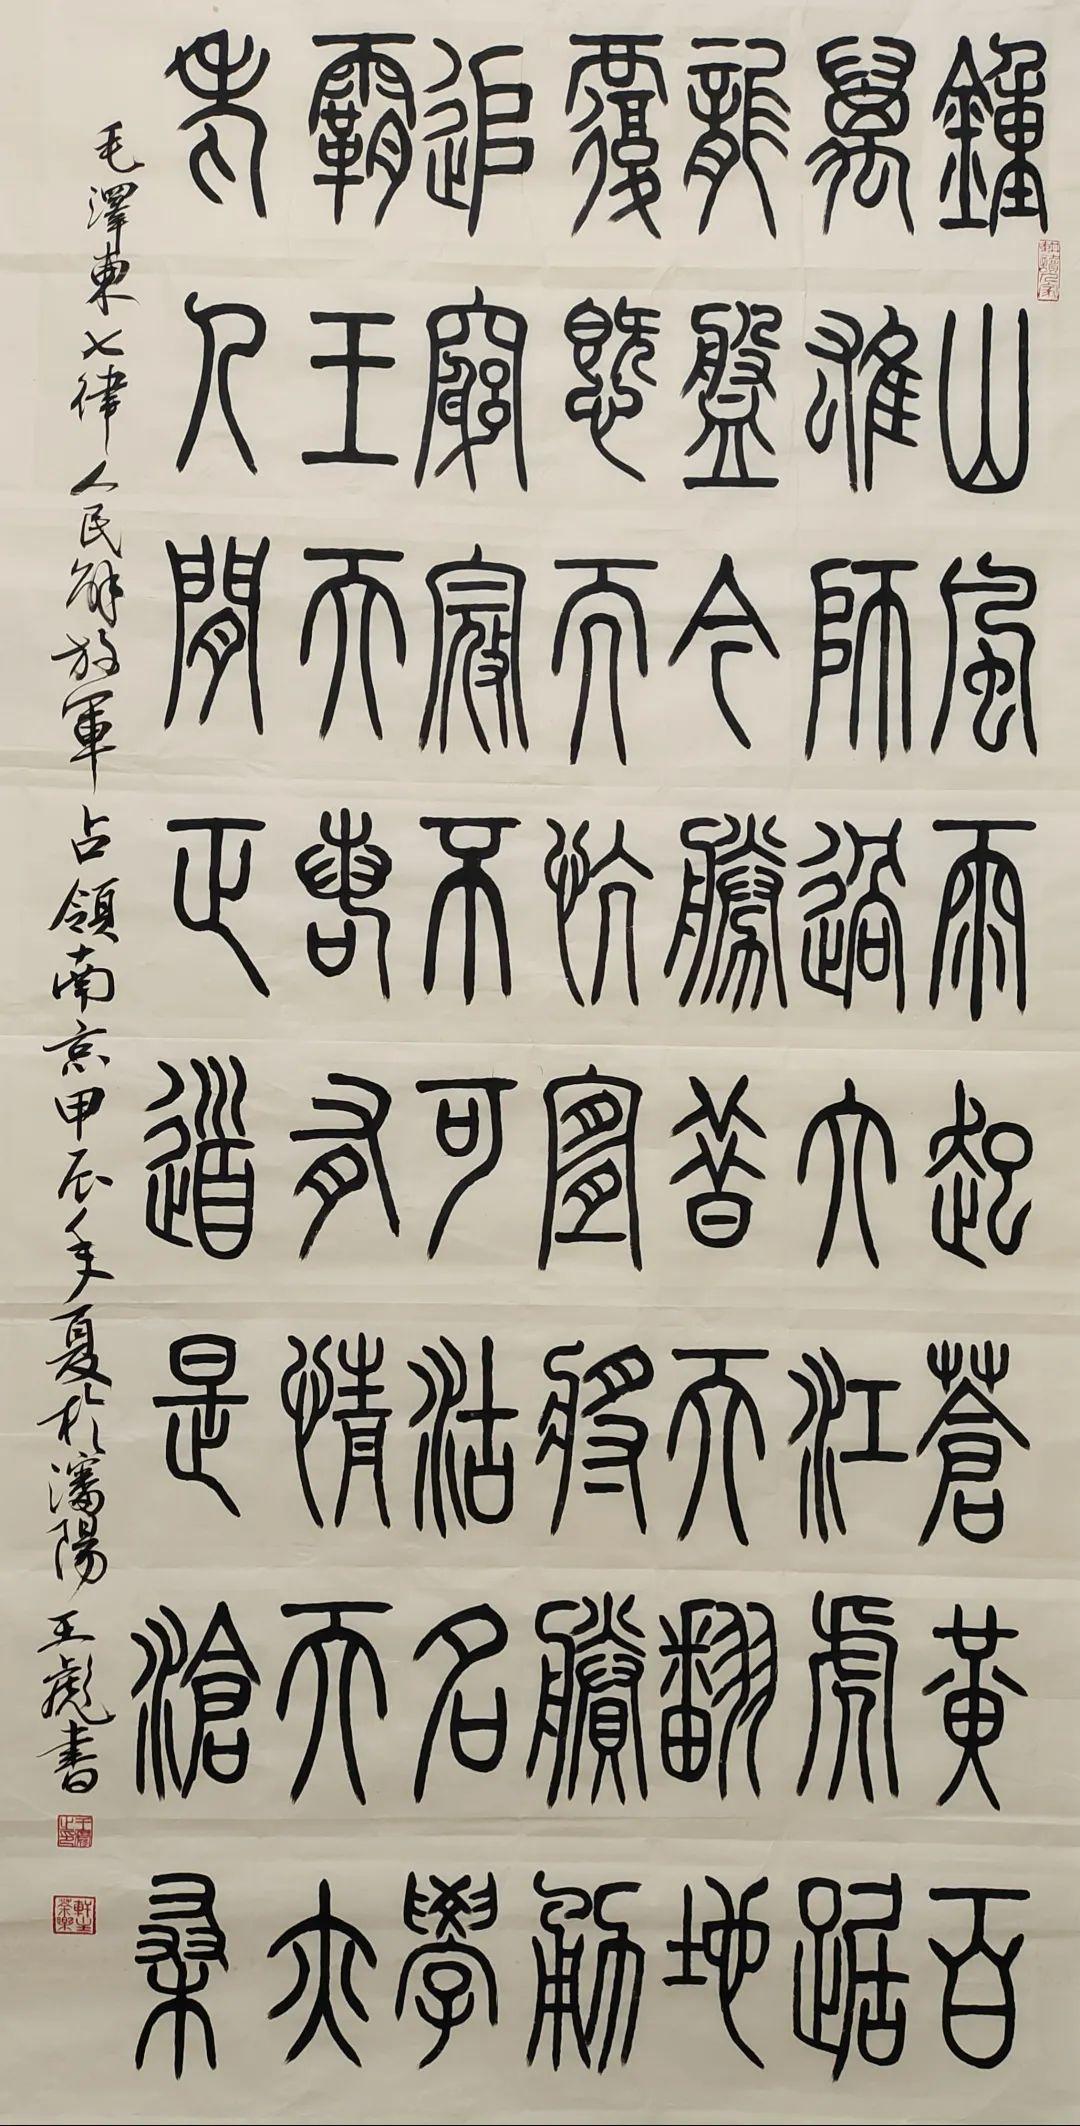 鍾山風雨起蒼黃百
萬雄師過大江虎踞
龍盤今勝昔天翻地
覆慨而慷宜將賸勇
追窮寇不可沽名學
霸王天若有情天亦
老人閒正道是滄桑
毛澤東七律人民解放軍占領南京甲辰年夏於瀋陽王彪書